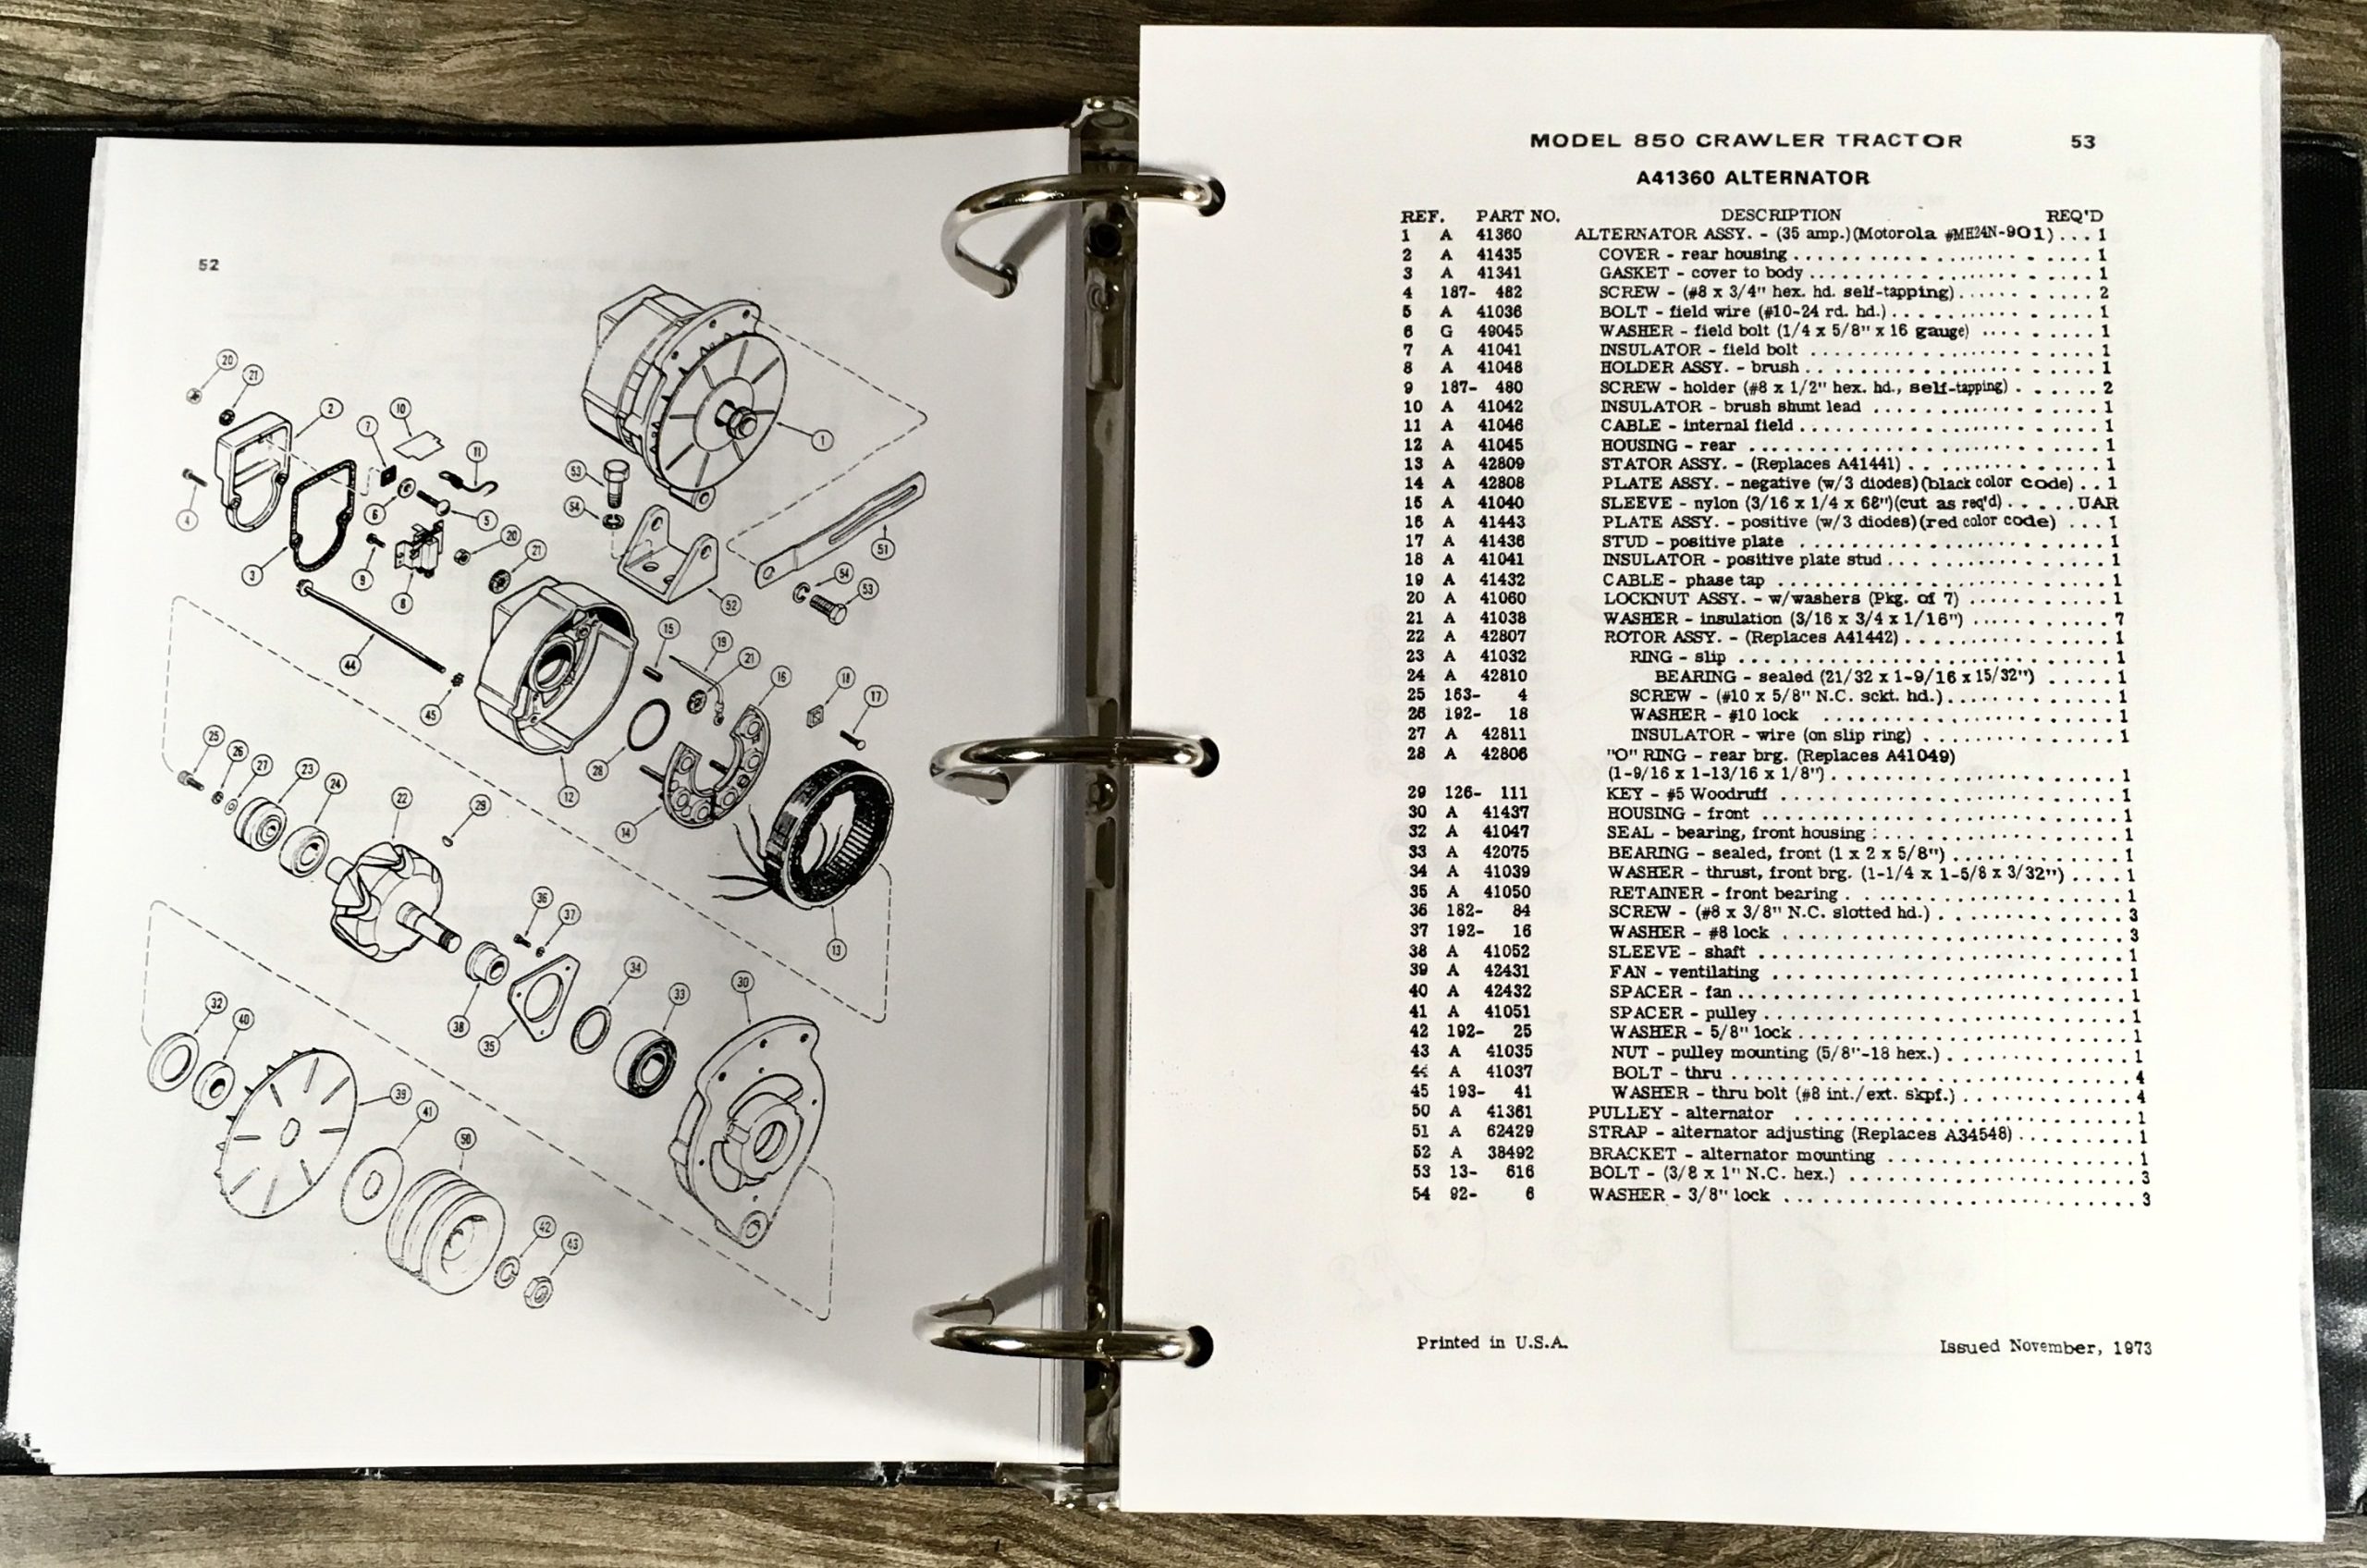 52
20
21
2
10
7
11
1
53
4
6
5
54
20
51
3
9
21
8
54
53
52
15
44
19
21
16
18
17
45
25
26
27
23
24
28
12
22
29
14
36
37
13
34
33
30
32
40
38
35
39
41
50
42
43
MODEL 850 CRAWLER TRACTOR 53
A41360 ALTERNATOR
REF. PART NO. DESCRIPTION REQ'D
1 A 41360 ALTERNATOR ASSY. - (35 amp.)(Motorola #MH24N-901) . . . 1
2 A 41435 COVER - rear housing . . . 1
3 A 41341 GASKET - cover to body . . . 1
4 187- 482 SCREW - (#8 x 3/4" hex. hd. self-tapping) . . . 2
5 A 41036 BOLT - field wire (#10-24 rd. hd.) . . . 1
6 G 49045 WASHER - field bolt (1/4 x 5/8" x 16 gauge) . . . 1
7 A 41041 INSULATOR - field bolt . . . 1
8 A 41048 HOLDER ASSY. - brush . . . 1
9 187- 480 SCREW - holder (#8 x 1/2" hex. hd., self-tapping) . . . 2
10 A 41042 INSULATOR - brush shunt lead . . . 1
11 A 41046 CABLE - internal field . . . 1
12 A 41045 HOUSING - rear . . . 1
13 A 42809 STATOR ASSY. - (Replaces A41441) . . . 1
14 A 42808 PLATE ASSY. - negative (w/3 diodes)(black color code) . . 1
15 A 41040 SLEEVE - nylon (3/16 x 1/4 x 68")(cut as req'd) . . . UAR
16 A 41443 PLATE ASSY. - positive (w/3 diodes)(red color code) . . . 1
17 A 41436 STUD - positive plate . . . 1
18 A 41041 INSULATOR - positive plate stud . . . 1
19 A 41432 CABLE - phase tap . . . 1
20 A 41060 LOCKNUT ASSY. - w/washers (Pkg. of 7) . . . 1
21 A 41038 WASHER - insulation (3/16 x 3/4 x 1/16") . . . 7
22 A 42807 ROTOR ASSY. - (Replaces A41442) . . . 1
23 A 41032 RING - slip . . . 1
24 A 42810 BEARING - sealed (21/32 x 1-9/16 x 15/32") . . . 1
25 163- 4 SCREW - (#10 x 5/8" N.C. sckt. hd.) . . . 1
26 192- 18 WASHER - #10 lock . . . 1
27 A 42811 INSULATOR - wire (on slip ring) . . . 1
28 A 42806 "O" RING - rear brg. (Replaces A41049)
(1-9/16 x 1-13/16 x 1/8") . . . 1
29 126- 111 KEY - #5 Woodruff . . . 1
30 A 41437 HOUSING - front . . . 1
32 A 41047 SEAL - bearing, front housing . . . 1
33 A 42075 BEARING - sealed, front (1 x 2 x 5/8") . . . 1
34 A 41039 WASHER - thrust, front brg. (1-1/4 x 1-5/8 x 3/32") . . . . 1
35 A 41050 RETAINER - front bearing . . . 1
36 182- 84 SCREW - (#8 x 3/8" N.C. slotted hd.) . . . 3
37 192- 16 WASHER - #8 lock . . . 3
38 A 41052 SLEEVE - shaft . . . 1
39 A 42431 FAN - ventilating . . . 1
40 A 42432 SPACER - fan . . . 1
41 A 41051 SPACER - pulley . . . 1
42 192- 25 WASHER - 5/8" lock . . . 1
43 A 41035 NUT - pulley mounting (5/8"-18 hex.) . . . 1
44 A 41037 BOLT - thru . . . 4
45 193- 41 WASHER - thru bolt (#8 int./ext. skpf.) . . . 4
50 A 41361 PULLEY - alternator . . . 1
51 A 62429 STRAP - alternator adjusting (Replaces A34548) . . . 1
52 A 38492 BRACKET - alternator mounting . . . 1
53 13- 616 BOLT - (3/8 x 1" N.C. hex.) . . . 3
54 92- 6 WASHER - 3/8" lock . . . 3
Printed in U.S.A. Issued November, 1973